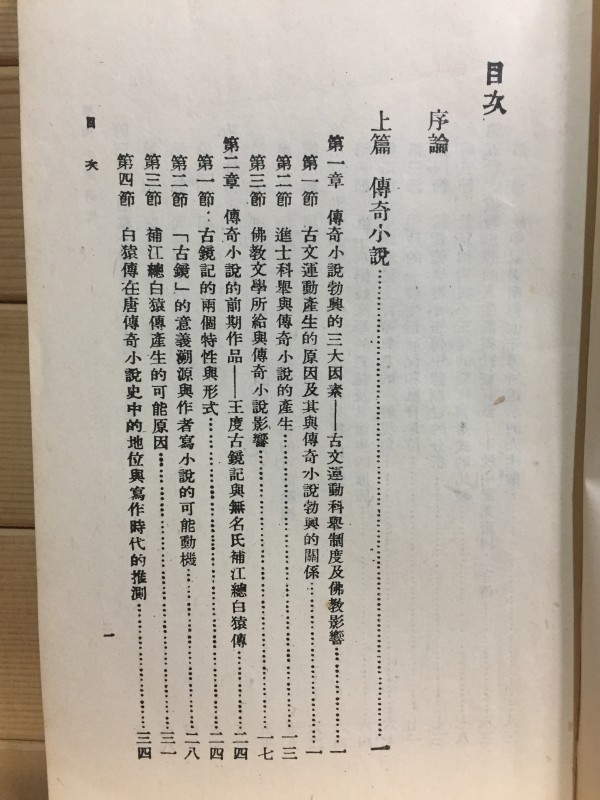 目次
序論
上篇　傳奇小說……一
第一章　傳奇小說勃興的三大因素——古文運動科舉制度及佛教影響……一
第一節　古文運動產生的原因及其與傳奇小說勃興的關係……一
第二節　進士科舉與傳奇小說的產生……一三
第三節　佛教文學所給與傳奇小說影響……一七
第二章　傳奇小說的前期作品——王度古鏡記與無名氏補江總白猿傳……二四
第一節　古鏡記的兩個特性與形式……二四
第二節　「古鏡」的意義溯源與作者寫小說的可能動機……二八
第三節　補江總白猿傳產生的可能原因……三一
第四節　白猿傳在唐傳奇小說史中的地位與寫作時代的推測……三四
目次
一